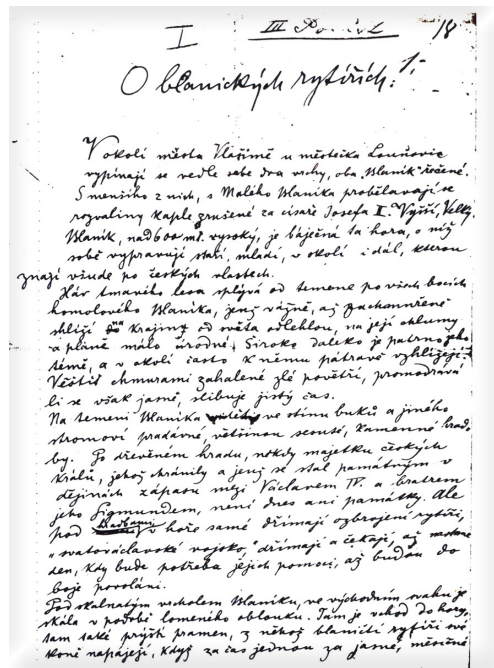 I III 18
O blanických rytířích.
V okolí města Vlašimě u městečka Louňovic
vypínají se vedle sebe dva vrchy, oba „Blaník“ řečené.
S menšího z nich, s Malého Blaníka probělávají se
rozvaliny kaple zrušené za císaře Josefa II. Vyšší, Velký
Blaník, nad 600 m. vysoký, je báječná ta hora, o níž
sobě vypravují staří, mladí, v okolí i dál, kterou
znají všude po českých vlastech.
Háv tmavého lesa splývá od temene po všech bocích
homolového Blaníka, jenž vážně, až zachmuřeně
shlíží na krajinu od světa odlehlou, na její chlumy
a pláně málo úrodné. Široko daleko je patrno jeho
témě, a v okolí často k němu pátravě vzhlížejí.
Věstíť chmurami zahalené zlé povětří, promodrává
li se však jasně, slibuje jistý čas.
Na temeni Blaníka ve stínu buků a jiného
stromoví pradávné, většinou sesuté, kamenné hrad-
by. Po dřevěném hradu, někdy majetku českých
králů, jehož chránily a jenž se stal památným v
dějinách zápasu mezi Václavem IV. a bratrem
jeho Sigmundem, není dnes ani památky. Ale
pod hradbami, v hoře samé dřímají ozbrojení rytíři,
„svatováclavské vojsko,“ dřímají a čekají, až nastane
den, kdy bude potřeba jejich pomoci, až budou do
boje povoláni.
Pod skalnatým vrcholem Blaníku, ve východním svahu je
skála v podobě lomeného oblouku. Tam je vchod do hory,
tam také prýští pramen, z něhož blaničtí rytíři své
koně napájejí, když za čas jednou za jasné, měsíčné